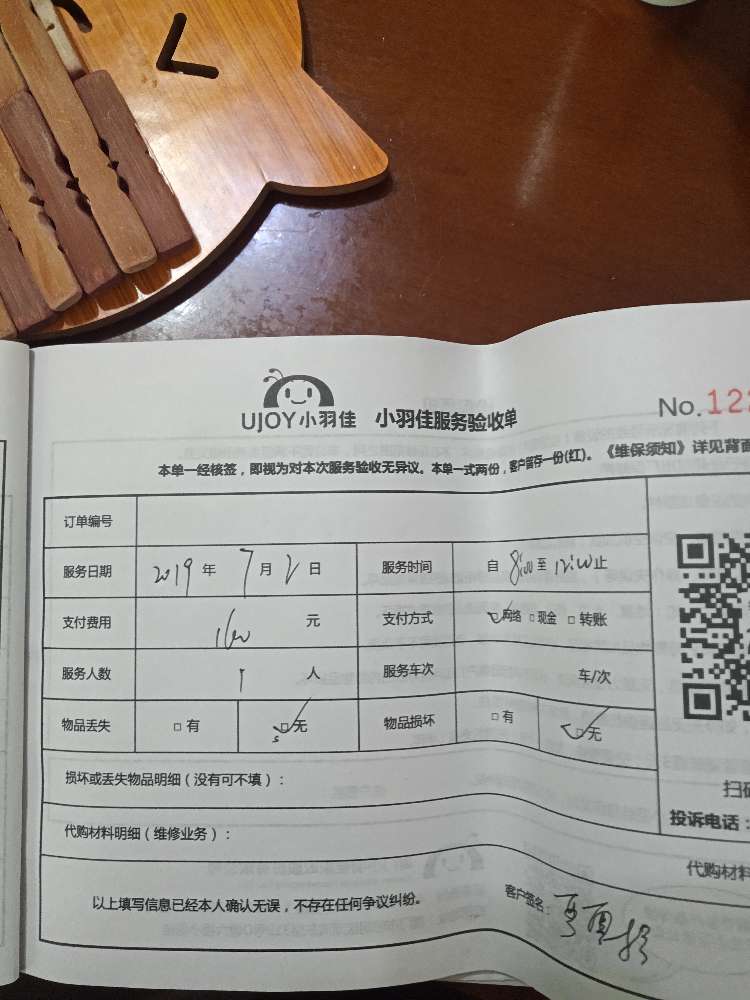 UJOY小羽佳 小羽佳服务验收单
No.122
本单一经核签，即视为对本次服务验收无异议。本单一式两份，客户留存一份(红)。《维保须知》详见背面
订单编号
服务日期 2019 年 7 月 2 日 服务时间 自 8:00 至 12:00 止
支付费用 160 元 支付方式 网络 □现金 □转账
服务人数 1 人 服务车次 车/次
物品丢失 □有 □无 物品损坏 □有 □无
损坏或丢失物品明细（没有可不填）：
代购材料明细（维修业务）：
扫码
投诉电话：
代购材料
以上填写信息已经本人确认无误，不存在任何争议纠纷。
客户签名：